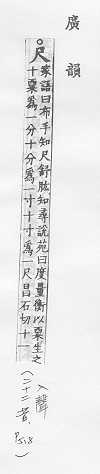 廣韻
尺 家語曰布手知尺舒肱知尋說苑曰度量衡以粟生之
十粟為一分十分為一寸十寸為一尺昌石切十一
入聲
(二十二昔,
P518)